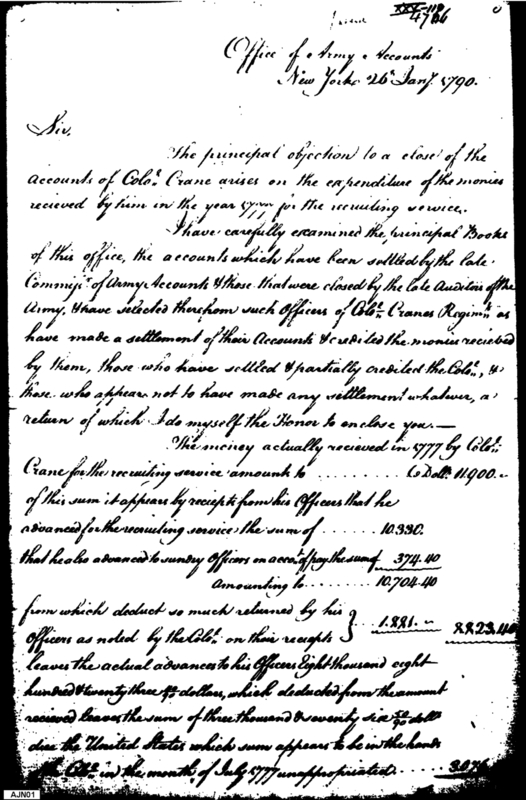 4766
Office of Army Accounts
New York 26th Jany. 1790.
Sir,
The principal objection to a close of the
accounts of Colol. Crane arises on the expenditure of the monies
recieved by him in the year 1777, for the recruiting service.
I have carefully examined the principal Books
of this office, the accounts which have been settled by the late
Commisr. of Army Accounts & those that were closed by the late Auditors of the
Army, & have selected therefrom such Officers of Colol. Cranes Regimt. as
have made a settlement of their Accounts & credited the monies recieved
by them, those who have settled & partially credited the Colol., &
those who appear not to have made any settlement whatever, a
return of which I do myself the Honor to enclose you.—
The money actually recieved in 1777 by Colol.
Crane for the recruiting service amount to .......... Dolls. 11.900.
of this sum it appears by receipts from his Officers that he
advanced for the recruiting service the sum of ...... 10.330.
that he also advanced to sundry Officers on accot. of pay the sum of 374.40
Amounting to ....... 10.704.40
from which deduct so much returned by his
Officers as noted by the Colol. on their receipts } 1.881. 8823.40
leaves the actual advances to his Officers Eight thousand eight
hundred & twenty three dollars, which deducted from the amount
recieved leaves the sum of three thousand & seventy six 50/90 dolls
due the United States which sum appears to be in the hands
Colol. in the month of July 1777 unappropriated ...... 3076
AJN01